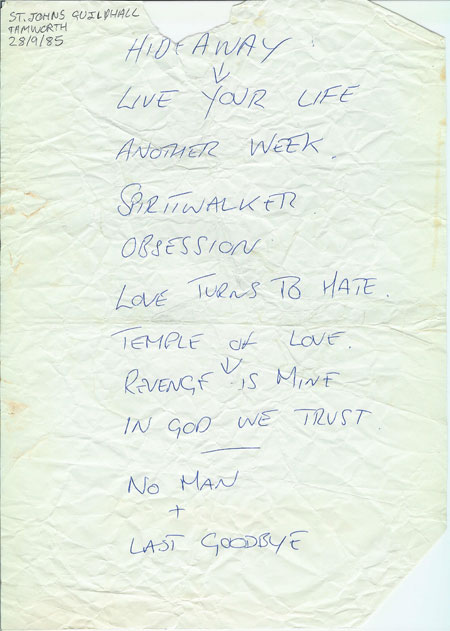 ST. JOHNS GUILDHALL
TAMWORTH
28/9/85
HIDEAWAY
↓
LIVE YOUR LIFE
ANOTHER WEEK.
SPIRITWALKER
OBSESSION
LOVE TURNS TO HATE.
TEMPLE OF LOVE.
↓
REVENGE IS MINE
IN GOD WE TRUST.
NO MAN
+
LAST GOODBYE